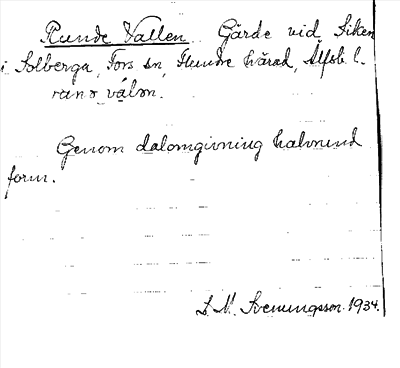 Runde Vallen Gärde vid Siken
i Solberga, Fors sn, Flundre härad, Älfsb. l.
Genom dalomgivning halvrund
form.
S. M. Svenungsson. 1934.